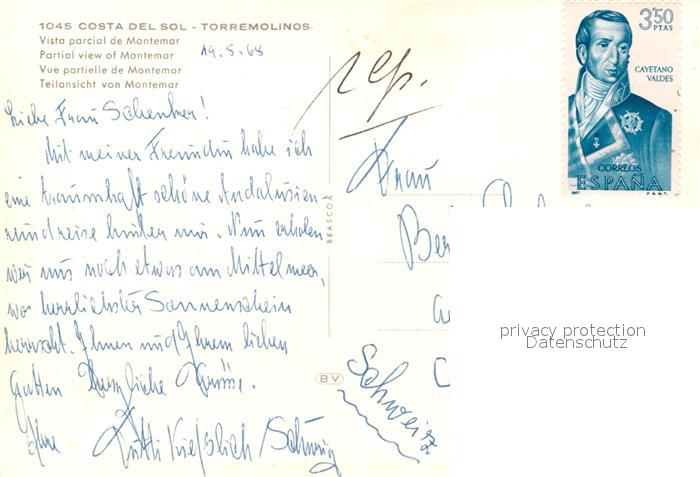 1045 COSTA DEL SOL - TORREMOLINOS
Vista parcial de Montemar
Partial view of Montemar
Vue partielle de Montemar
Teilansicht von Montemar
19.5.68
rep.
Liebe Frau Schenker!
Mit meiner Freundin habe ich
eine traumhaft schöne Andalusien-
rundreise hinter mir. Nun erholen
wir uns noch etwas am Mittelmeer,
wo herrlichster Sonnenschein
herrscht. Ihnen und Ihrem lieben
Gatten herzliche Grüsse.
Ihre
BEASCOA
BV
Frau
Schweiz
3'50
PTAS
CAYETANO
VALDES
CORREOS
ESPAÑA
1967
F.N.M.T.
privacy protection
Datenschutz